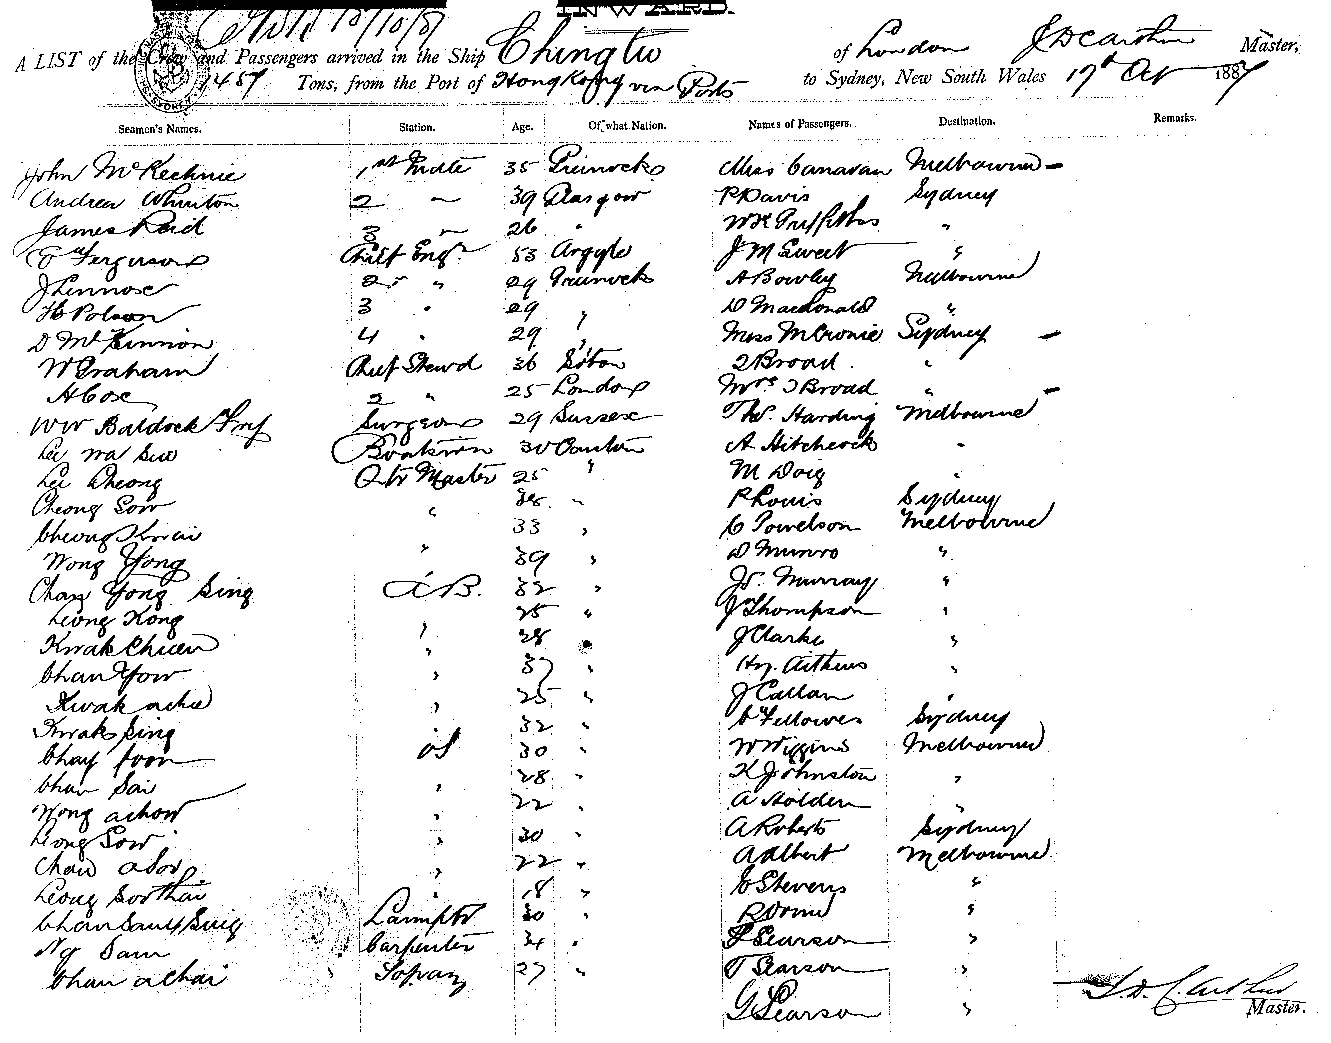 INWARD.
18/10/87
A LIST of the Crew and Passengers arrived in the Ship Chingtu of London J D C Arthur Master,
1457 Tons, from the Port of Hong Kong via Ports to Sydney, New South Wales 17th Oct 1887
Seamen's Names. Station. Age. Of what Nation. Names of Passengers. Destination. Remarks.
John McKechnie 1st Mate 35 Greenock Miss Canavan Melbourne -
Andrew Whinton 2 " 39 Glasgow P Davis Sydney
James Reid 3 " 26 " W H Griffiths "
D Ferguson Chief Engr. 53 Argyle J M Sweet "
J Lennox 2 " 29 Greenock A Bowley Melbourne
H Polson 3 " 29 " D Macdonald "
D McKinnon 4 " 29 " Miss McCronie Sydney -
W Graham Chief Stewd 36 J Broad "
H Cox 2 " 25 London Mrs J Broad " -
WW Baldock Surgeon 29 Sussex Thos. Harding Melbourne
Lee Wa Sue Boatswn 30 Canton A Hitchcock "
Lee Cheong Qtr Master 25 " M Doig "
Cheong Sow " 38 " P Louis Sydney
Cheong Kwai " 33 " C Powelson Melbourne
Wong Yong " 39 " D Munro "
Chan Yong Sing A.B. 32 " Js. Murray "
Leong Kong " 25 " J Thompson "
Kwak Chuen " 28 " J Clarke "
Chan Yow " 37 " Hy. Aitkins "
Kwak achu " 25 " J Callan "
Kwak Sing " 32 " C Fellowes Sydney
Chay foon OS 30 " W Wiggins Melbourne
Chan Sai " 28 " K Johnston "
Wong achow " 22 " A Holden "
Leong Sow " 30 " A Roberts Sydney
Chan " 22 " A Albert Melbourne
Leong Soothai " 18 " C Stevens "
Chan Sing Lamptr 30 " R "
Ng Sam Carpenter 34 " F Pearson "
Chan achai 27 " T Pearson "
G Pearson "
J. D. C. Arthur
Master.